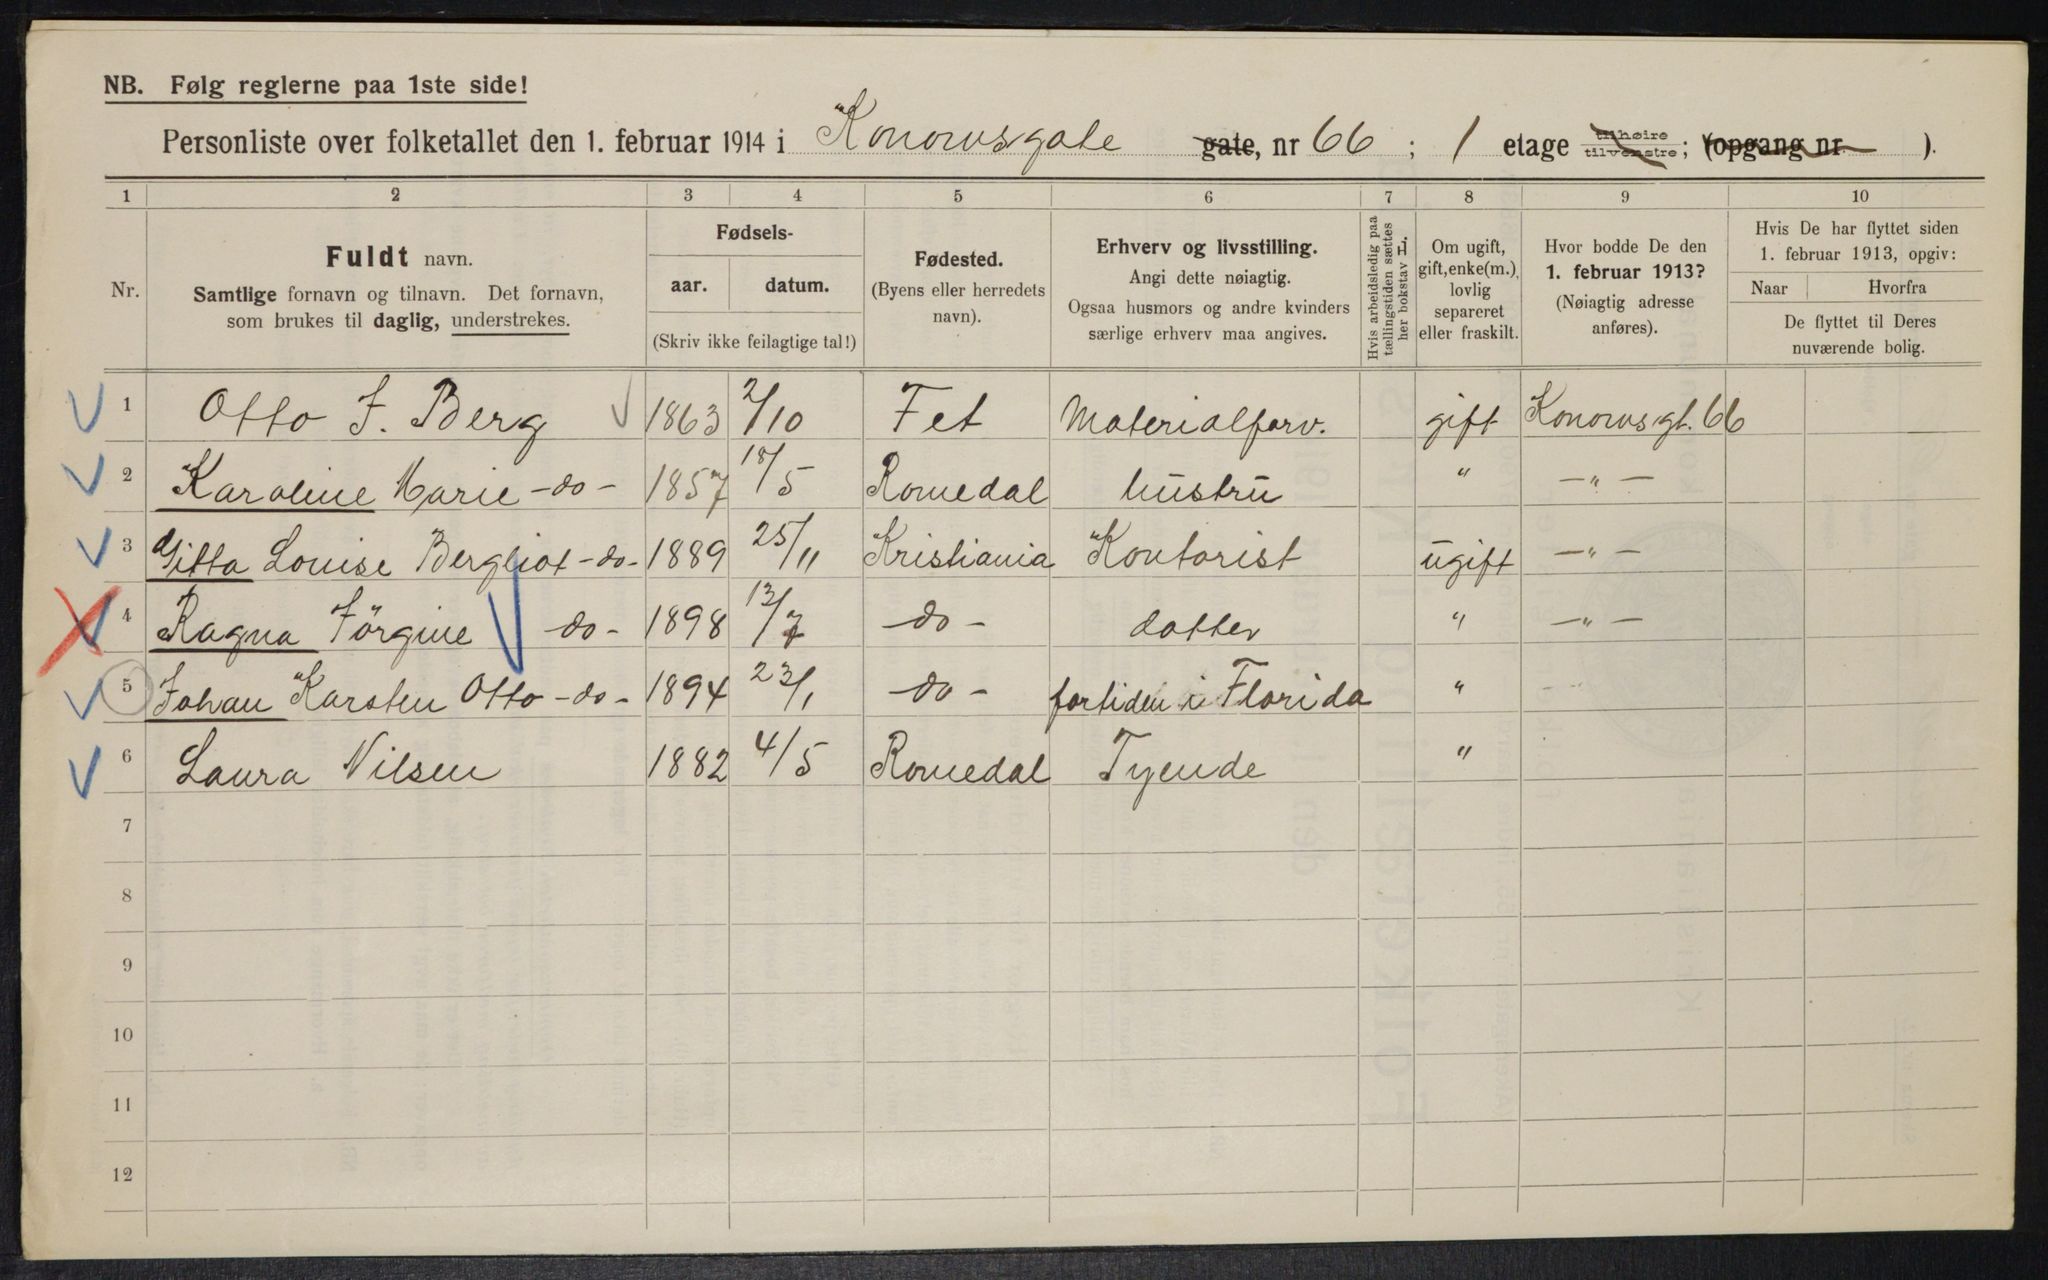 NB. Følg reglerne paa 1ste side!
Personliste over folketallet den 1. februar 1914 i Konowsgate gate, nr 66 ; 1 etage tilhøire tilvenstre ; (opgang nr. ).
1 2 3 4 5 6 7 8 9 10
Nr. Fuldt navn. Samtlige fornavn og tilnavn. Det fornavn, som brukes til daglig, understrekes.
Fødsels- aar. datum. (Skriv ikke feilagtige tal!)
Fødested. (Byens eller herredets navn).
Erhverv og livsstilling. Angi dette nøiagtig. Ogsaa husmors og andre kvinders særlige erhverv maa angives.
Hvis arbeidsledig paa tællingstiden sættes her bokstav L.
Om ugift, gift, enke(m.), lovlig separeret eller fraskilt.
Hvor bodde De den 1. februar 1913? (Nøiagtig adresse anføres).
Hvis De har flyttet siden 1. februar 1913, opgiv: Naar Hvorfra De flyttet til Deres nuværende bolig.
1 Otto J. Berg 1863 2/10 Fet Materialforv. gift Konowsgt. 66
2 Karoline Marie -do- 1857 18/5 Romedal hustru " -"-
3 Gitta Louise Bergliot -do- 1889 25/11 Kristiania Kontorist ugift -"-
4 Ragna Jörgine -do- 1898 13/7 -do- datter " -"-
5 Johan Karsten Otto -do- 1894 23/1 -do- fortiden i Florida "
6 Laura Nilsen 1882 4/5 Romedal Tyende "
7
8
9
10
11
12